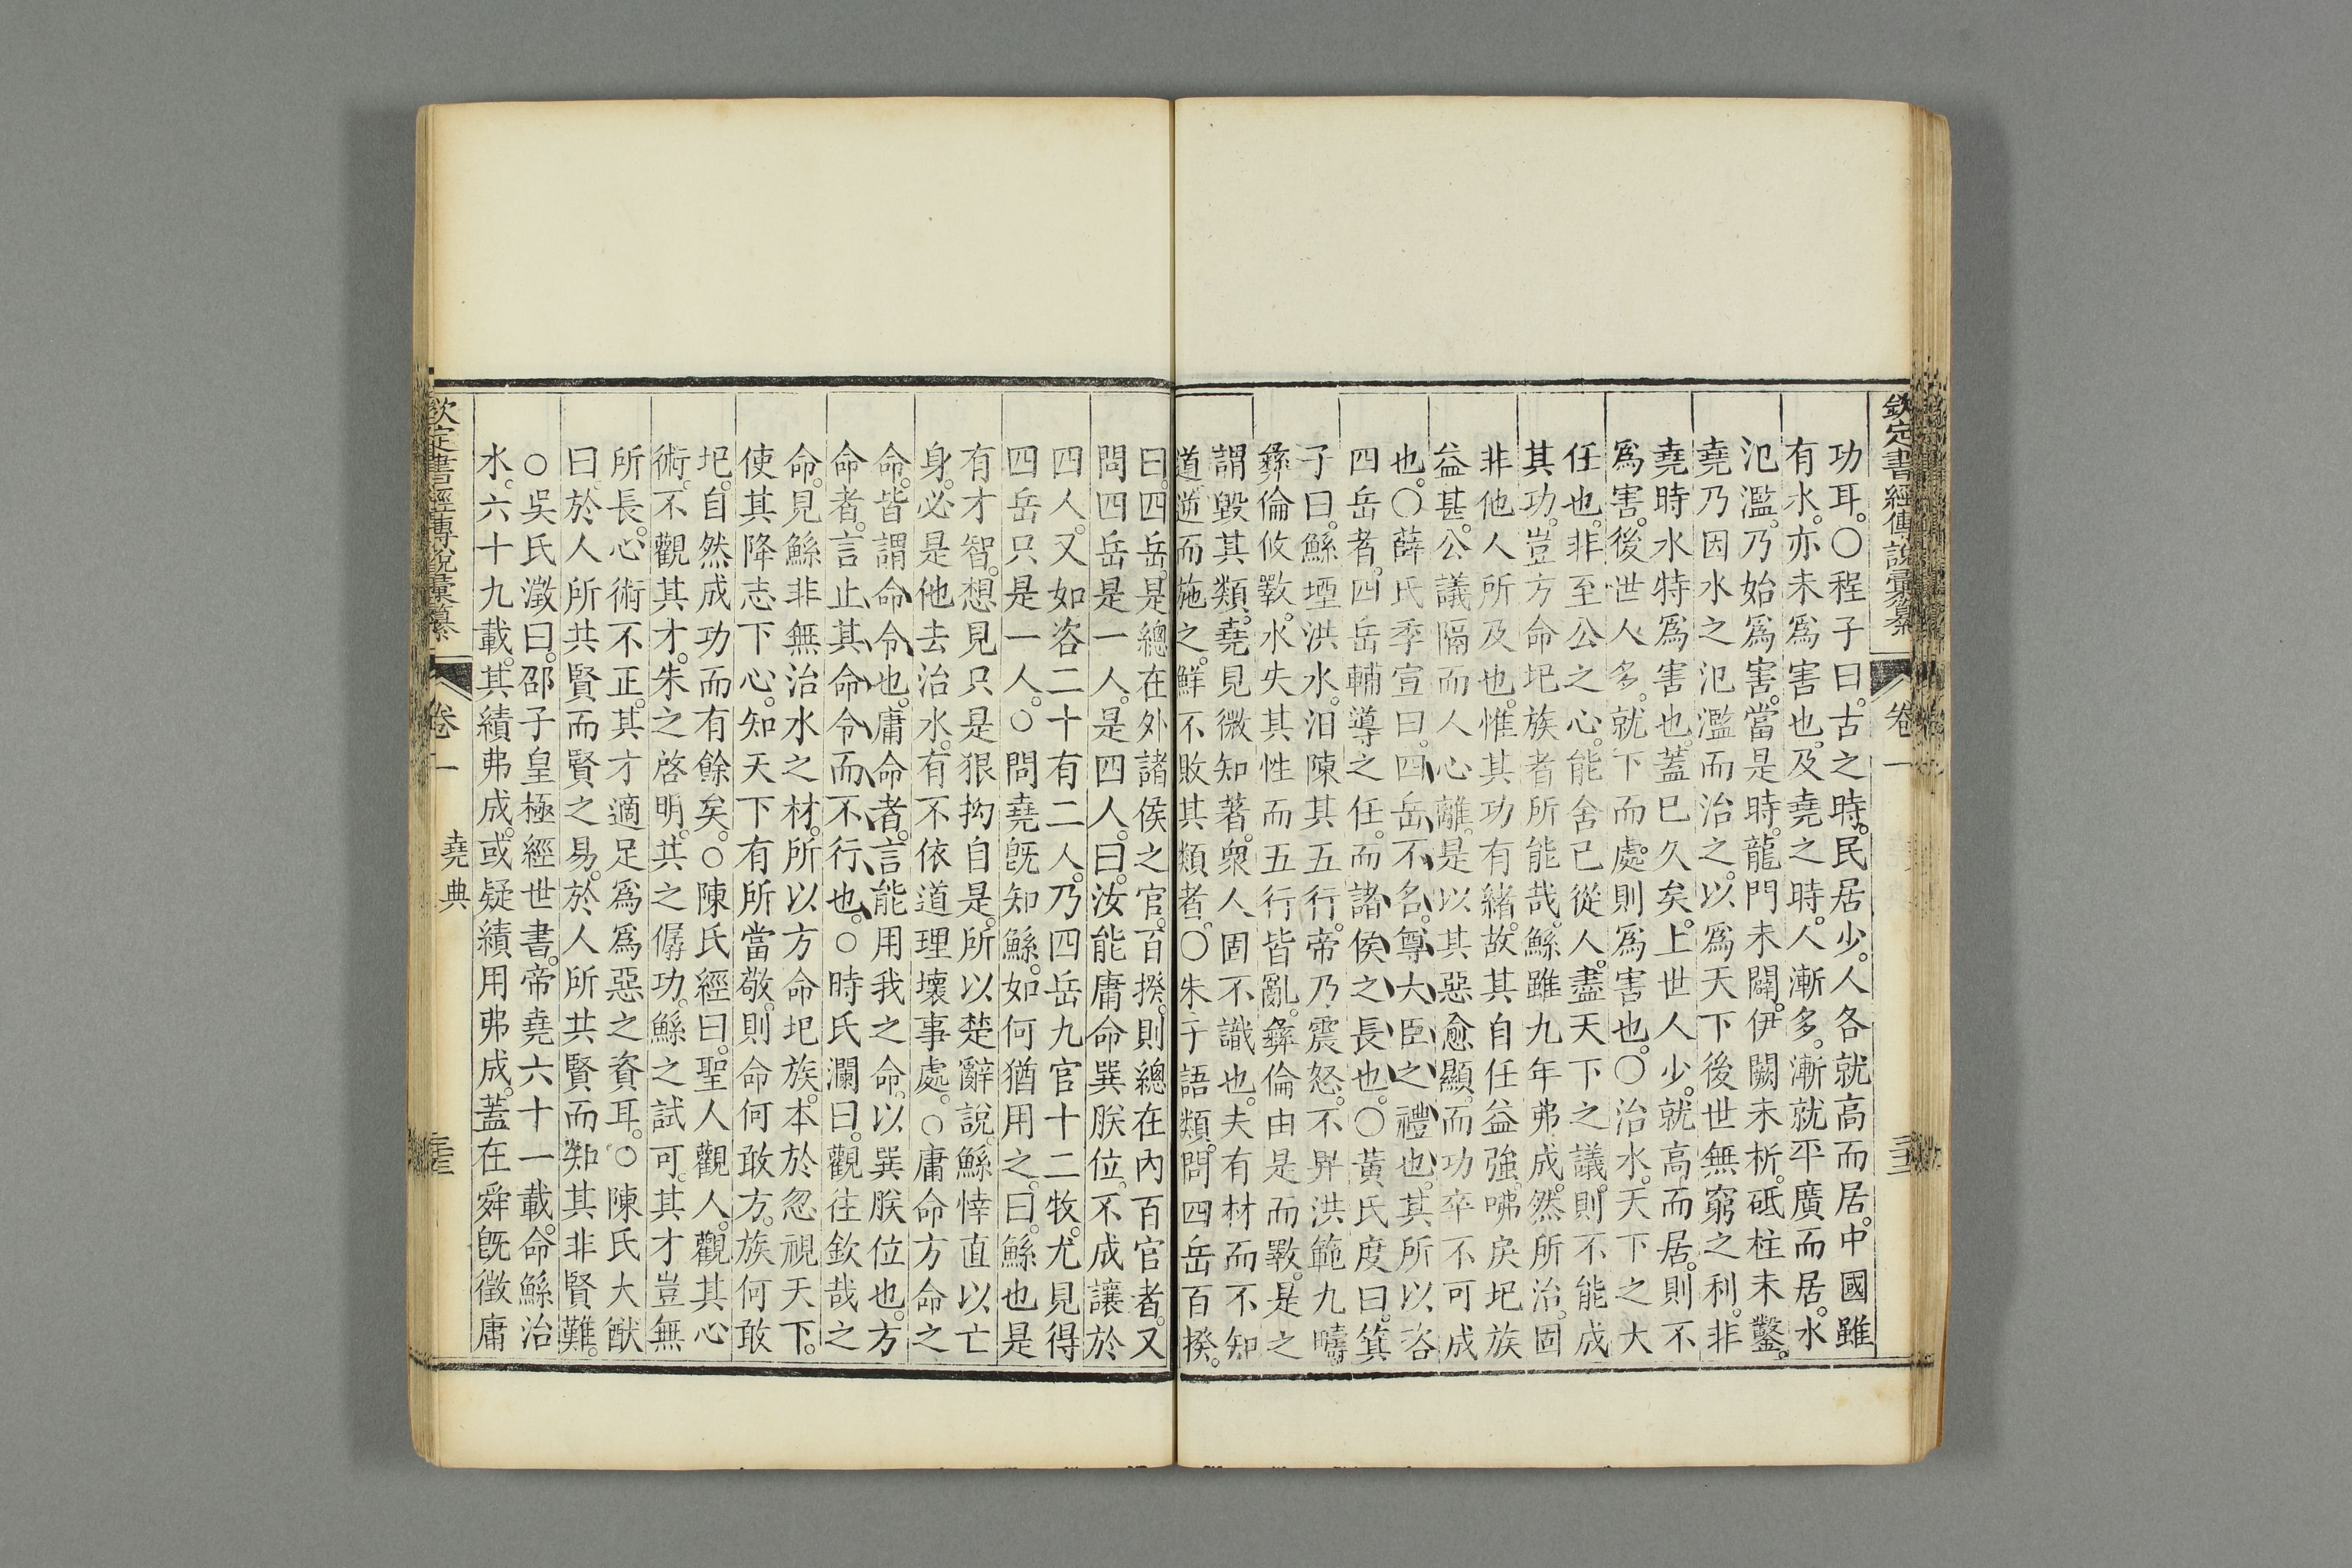 欽定書經傳說彙纂 卷一
功耳。○程子曰。古之時。民居少。人各就高而居。中國雖
有水。亦未爲害也。及堯之時。人漸多。漸就平廣而居。水
氾濫。乃始爲害。當是時。龍門未闢。伊闕未析。砥柱未鑿。
堯乃因水之氾濫而治之。以爲天下後世無窮之利。非
堯時水特爲害也。蓋已久矣。上世人少。就高而居。則不
爲害。後世人多。就下而處。則爲害也。○治水。天下之大
任也。非至公之心。能舍己從人。盡天下之議。則不能成
其功。豈方命圮族者所能哉。鯀雖九年弗成。然所治。固
非他人所及也。惟其功有緒。故其自任益強。咈戾圮族
益甚。公議隔而人心離。是以其惡愈顯。而功卒不可成
也。○薛氏季宣曰。四岳不名。尊大臣之禮也。其所以咨
四岳者。四岳輔導之任。而諸侯之長也。○黃氏度曰。箕
子曰。鯀堙洪水。汨陳其五行。帝乃震怒。不畀洪範九疇
彝倫攸斁。水失其性而五行皆亂。彝倫由是而斁。是之
謂毀其類。堯見微知著。衆人固不識也。夫有材而不知
道。逆而施之。鮮不敗其類者。○朱子語類。問四岳百揆。
曰。四岳。是總在外諸侯之官。百揆。則總在內百官者。又
問四岳是一人。是四人。曰。汝能庸命巽朕位。不成讓於
四人。又如咨二十有二人。乃四岳九官十二牧。尤見得
四岳只是一人。○問堯旣知鯀。如何猶用之。曰。鯀也是
有才智。想見只是狠拗自是。所以楚辭說。鯀悻直以亡
身。必是他去治水。有不依道理壞事處。○庸命方命之
命。皆謂命令也。庸命者。言能用我之命。以巽朕位也。方
命者。言止其命令而不行也。○時氏瀾曰。觀往欽哉之
命。見鯀非無治水之材。所以方命圮族。本於忽視天下。
使其降志下心。知天下有所當敬。則命何敢方。族何敢
圮。自然成功而有餘矣。○陳氏經曰。聖人觀人。觀其心
術。不觀其才。朱之啓明。共之僝功。鯀之試可。其才豈無
所長。心術不正。其才適足爲爲惡之資耳。○陳氏大猷
曰。於人所共賢而賢之易。於人所共賢而知其非賢難。
○吳氏澂曰。邵子皇極經世書。帝堯六十一載。命鯀治
水。六十九載。其績弗成。或疑績用弗成。蓋在舜旣徵庸
欽定書經傳說彙纂 卷一 堯典